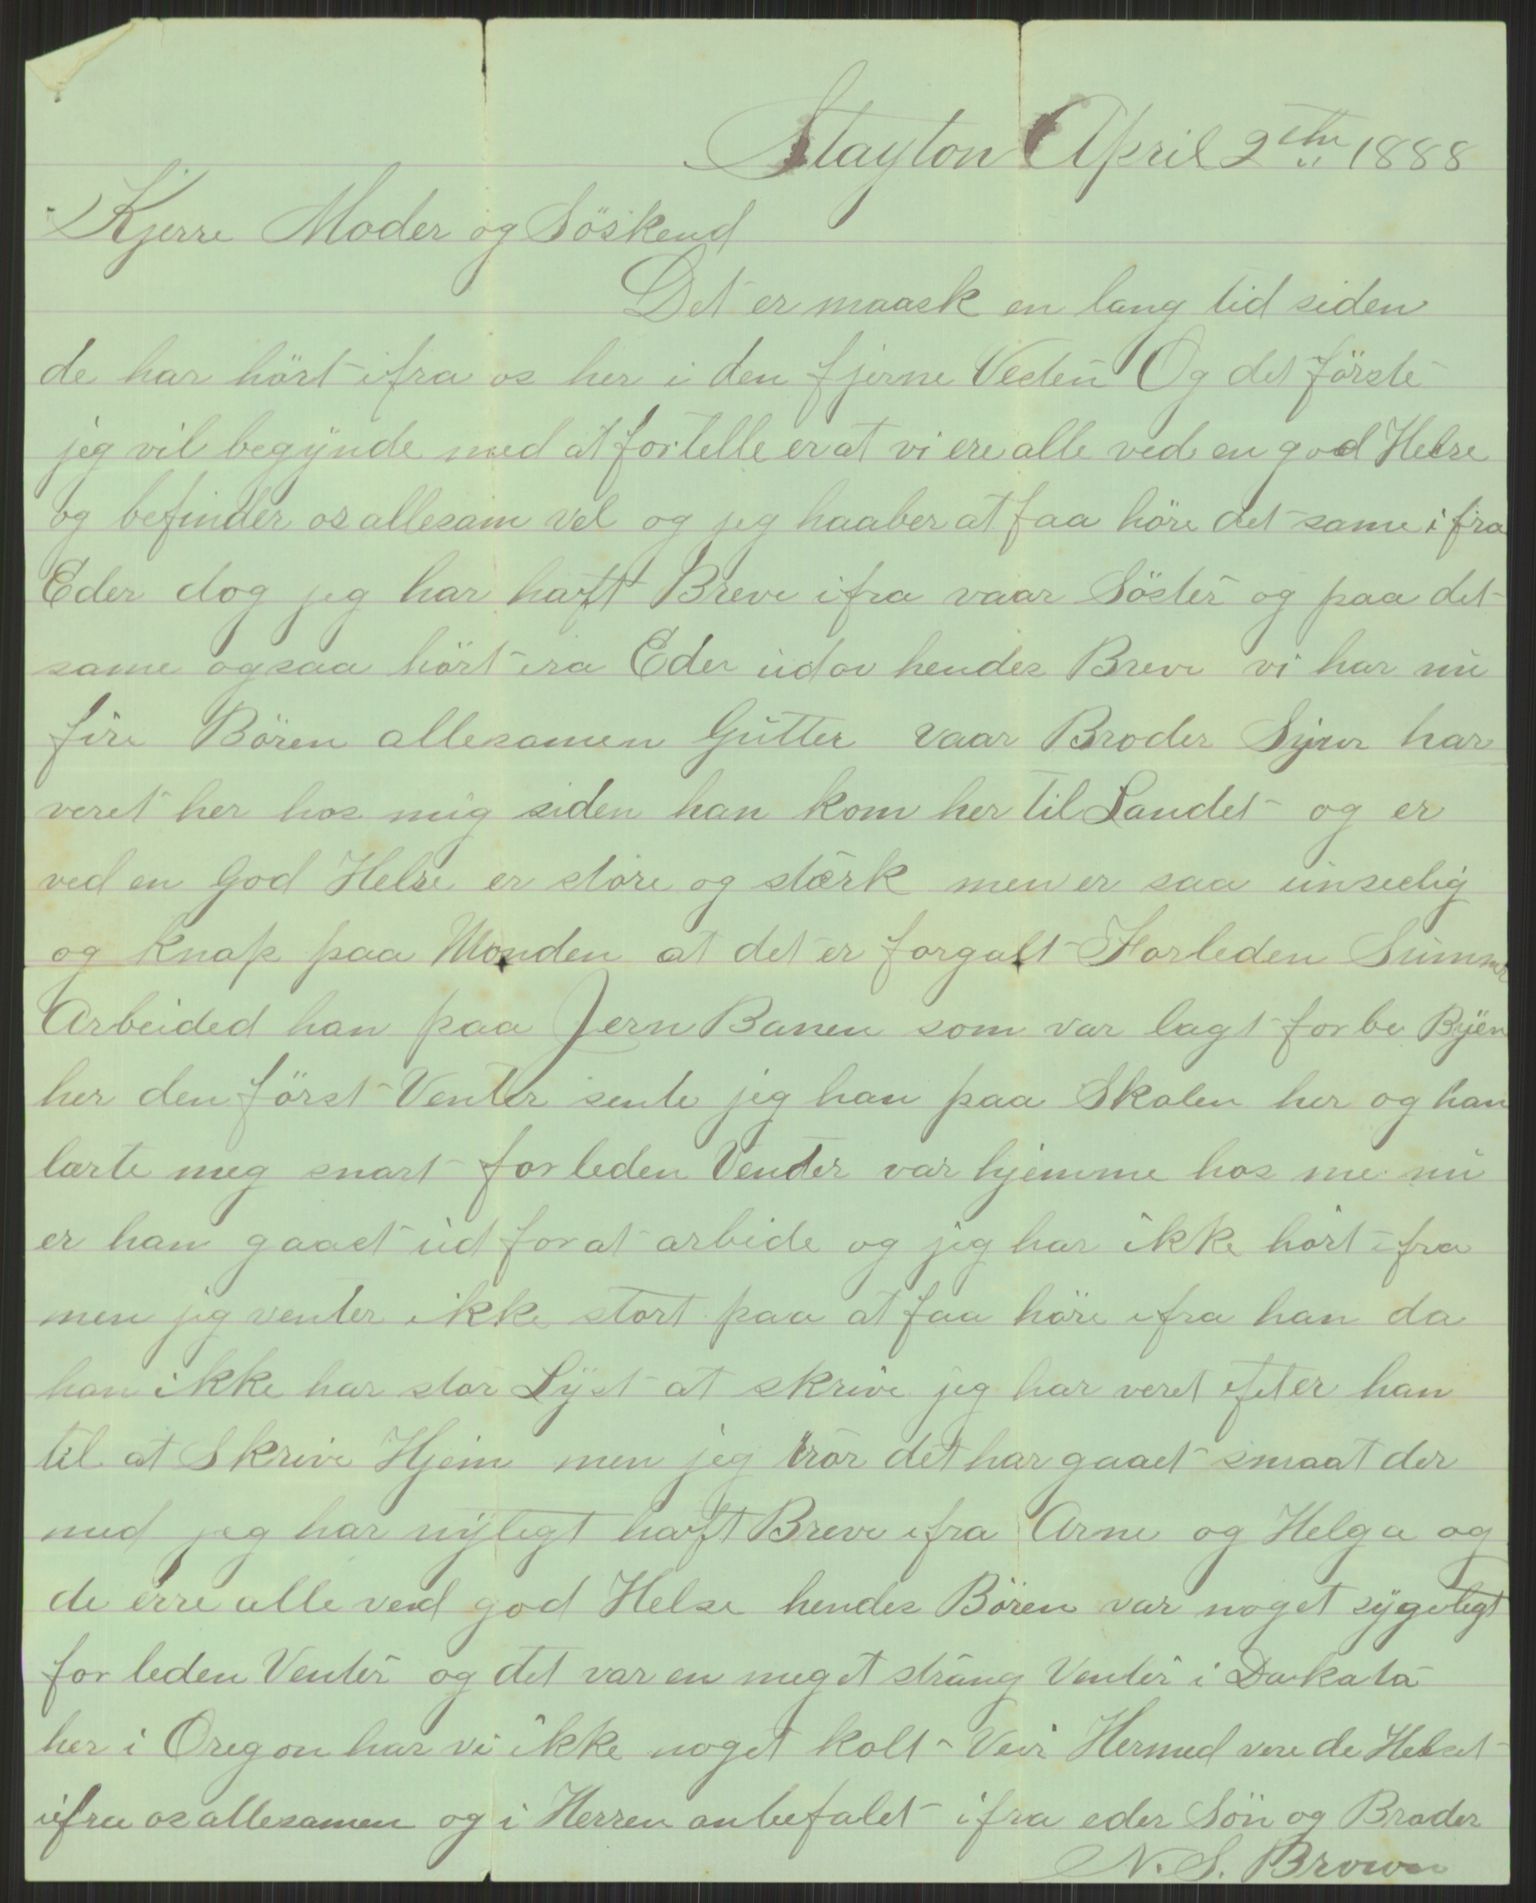 Stayton April 2th 1888
Kjerre Moder og Söskend
Det er maask en lang tid siden
de har hört ifra os her i den fjerne Vesten Og det förste
jeg vil begynde med at fortelle er at vi ere alle ved en god Helse
og befinder os allesam vel og jeg haaber at faa höre det same ifra
Eder dog jeg har haft Breve ifra vaar Söster og paa det
same ogsaa hört ira Eder udov hendes Breve vi har nu
fire Bören allesamen Gutter vaar Broder Sjur har
veret her hos mig siden han kom her til Landet og er
ved en God Helse er store og stærk men er saa unseelig
og knap paa Monden at det er forgalt Forleden Summer
Arbeided han paa Jern Banen som var lagt forbe Byen
her den först Venter sente jeg han paa Skolen her og han
lærte meg snart forleden Venter var hjemme hos me nu
er han gaaet ud for at arbide og jeg har ikke hört ifra
men jeg venter ikke stort paa at faa höre ifra han da
han ikke har stor Lyst at skrive jeg har veret efter han
til at Skrive Hjem men jeg tror det har gaaet smaat der
med jeg har nyligt haft Breve ifra Arne og Helga og
de erre alle ved god Helse hendes Bören var noget sygeligt
for leden Venter og det var en meget strang Venter i Dakata
her i Oregon har vi ikke noget kolt Veir Hermed vere de Helset
ifra os allesamen og i Herren anbefalet ifra eder Sön og Brader
N. S. Brown